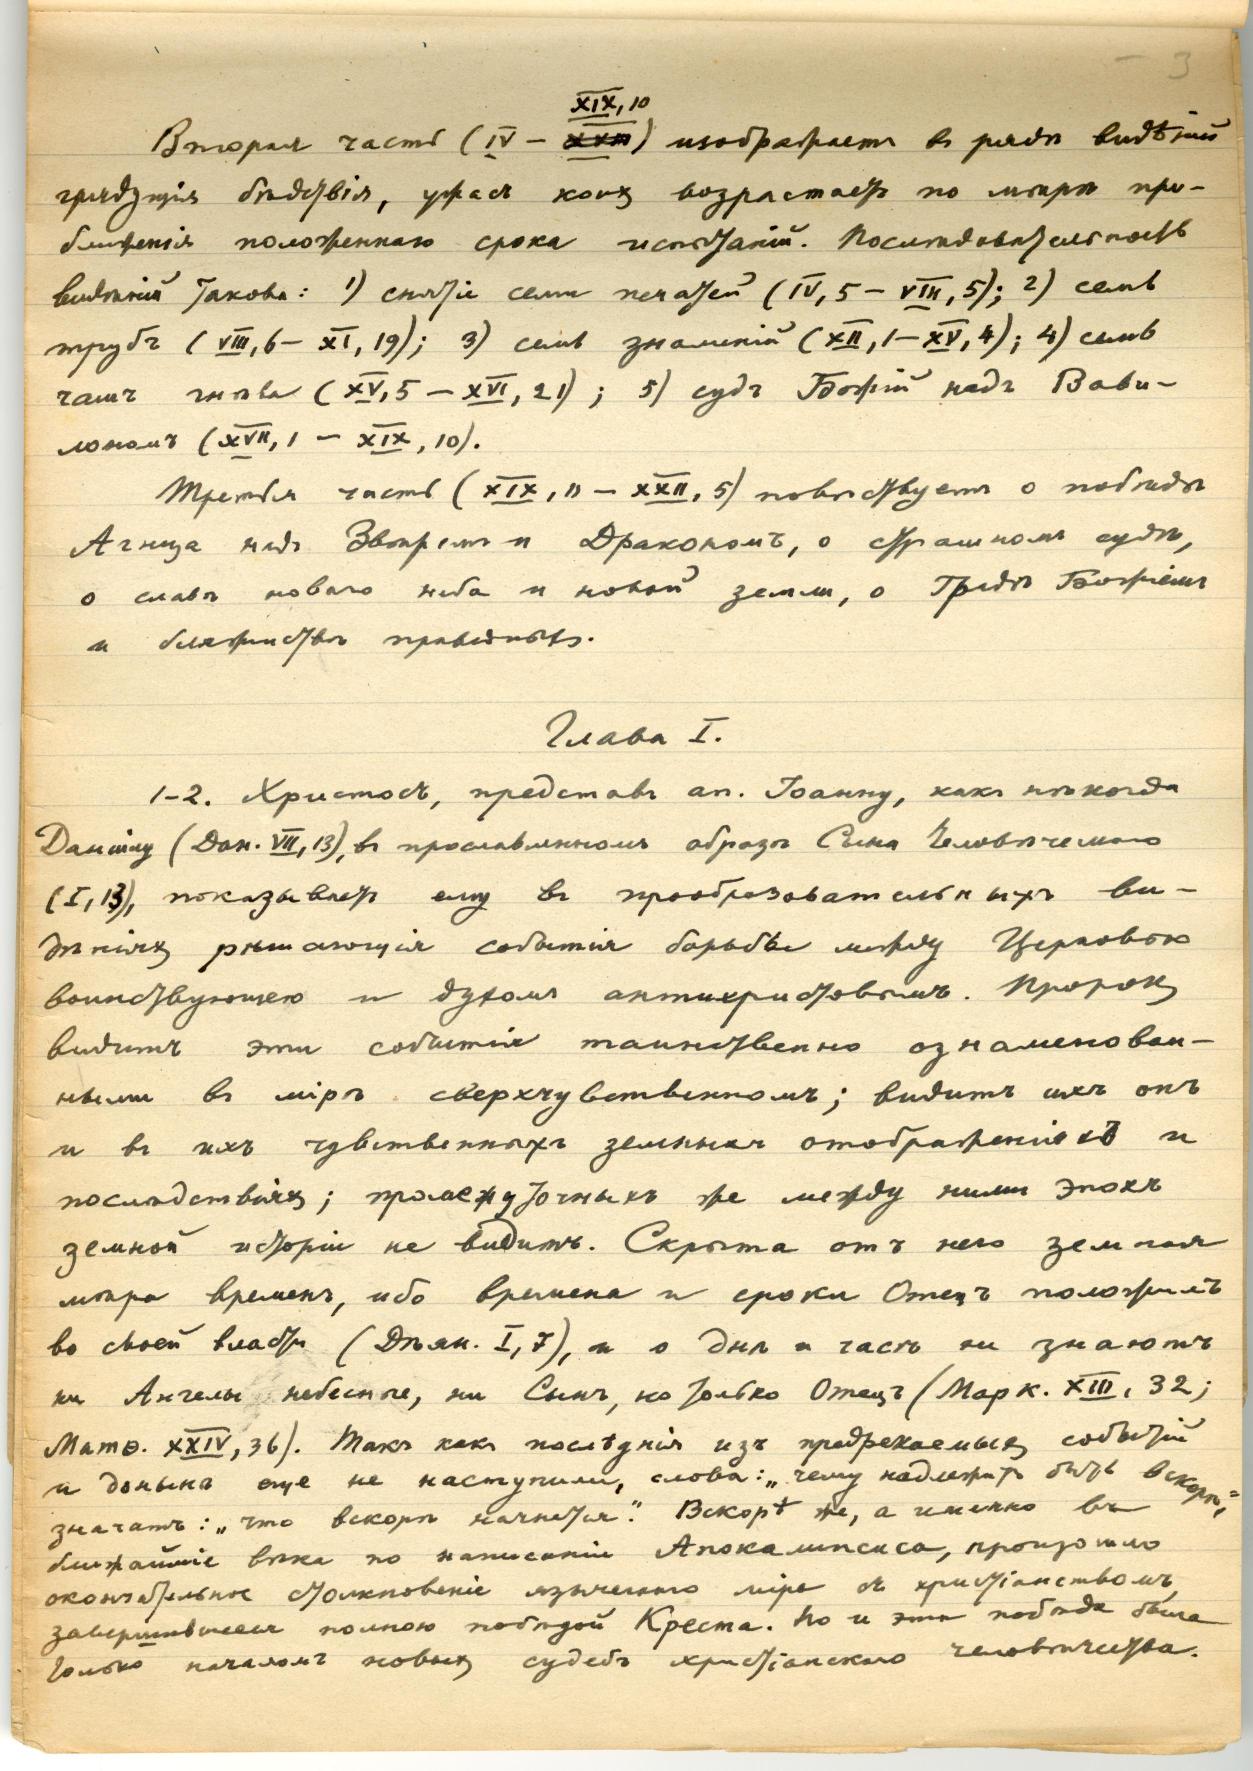 3
XIX, 10
Вторая часть (IV – XVIII) изображаетъ въ рядѣ видѣній
грядущія бѣдствія, ужасъ коихъ возрастаетъ по мѣрѣ при-
ближенія положеннаго срока испытаній. Послѣдовательность
видѣній такова: 1) снятіе семи печатей (IV, 5 – VIII, 5); 2) семь
трубъ (VIII, 6 – XI, 19); 3) семь знаменій (XII, 1 – XV, 4); 4) семь
чашъ гнѣва (XV, 5 – XVI, 21); 5) судъ Божій надъ Вави-
лономъ (XVII, 1 – XIX, 10).
Третья часть (XIX, 11 – XXII, 5) повѣствуетъ о побѣдѣ
Агнца надъ Звѣремъ и Дракономъ, о страшномъ судѣ,
о славѣ новаго неба и новой земли, о Градѣ Божіемъ
и блаженствѣ праведныхъ.
Глава I.
1-2. Христосъ, представъ ап. Іоанну, какъ нѣкогда
Даніилу (Дан. VII, 13), въ прославленномъ образѣ Сына Человѣческаго
(I, 13), показываетъ ему въ прообразовательныхъ ви-
дѣніяхъ рѣшающія событія борьбы между Церковью
воинствующею и духомъ антихристовымъ. Пророкъ
видитъ эти событія таинственно ознаменован-
ными въ мірѣ сверхчувственномъ; видитъ ихъ онъ
и въ ихъ чувственныхъ земныхъ отображеніяхъ и
послѣдствіяхъ; промежуточныхъ же между ними эпохъ
земной исторіи не видитъ. Скрыта отъ него земная
мѣра временъ, ибо времена и сроки Отецъ положилъ
во своей власти (Дѣян. I, 7), и о днѣ и часѣ не знаютъ
ни Ангелы небесные, ни Сынъ, но только Отецъ (Марк. XIII, 32;
Матѳ. XXIV, 36). Такъ какъ послѣднія изъ предрекаемыхъ событій
и донынѣ еще не наступили, слова: „чему надлежитъ быть вскорѣ",
значатъ: „что вскорѣ начнется". Вскорѣ же, а именно въ
ближайшіе вѣка по написаніи Апокалипсиса, произошло
окончательное столкновеніе языческаго міра съ христіанствомъ,
завершившееся полною побѣдой Креста. Но и эта побѣда была
только началомъ новыхъ судебъ христіанскаго человѣчества.